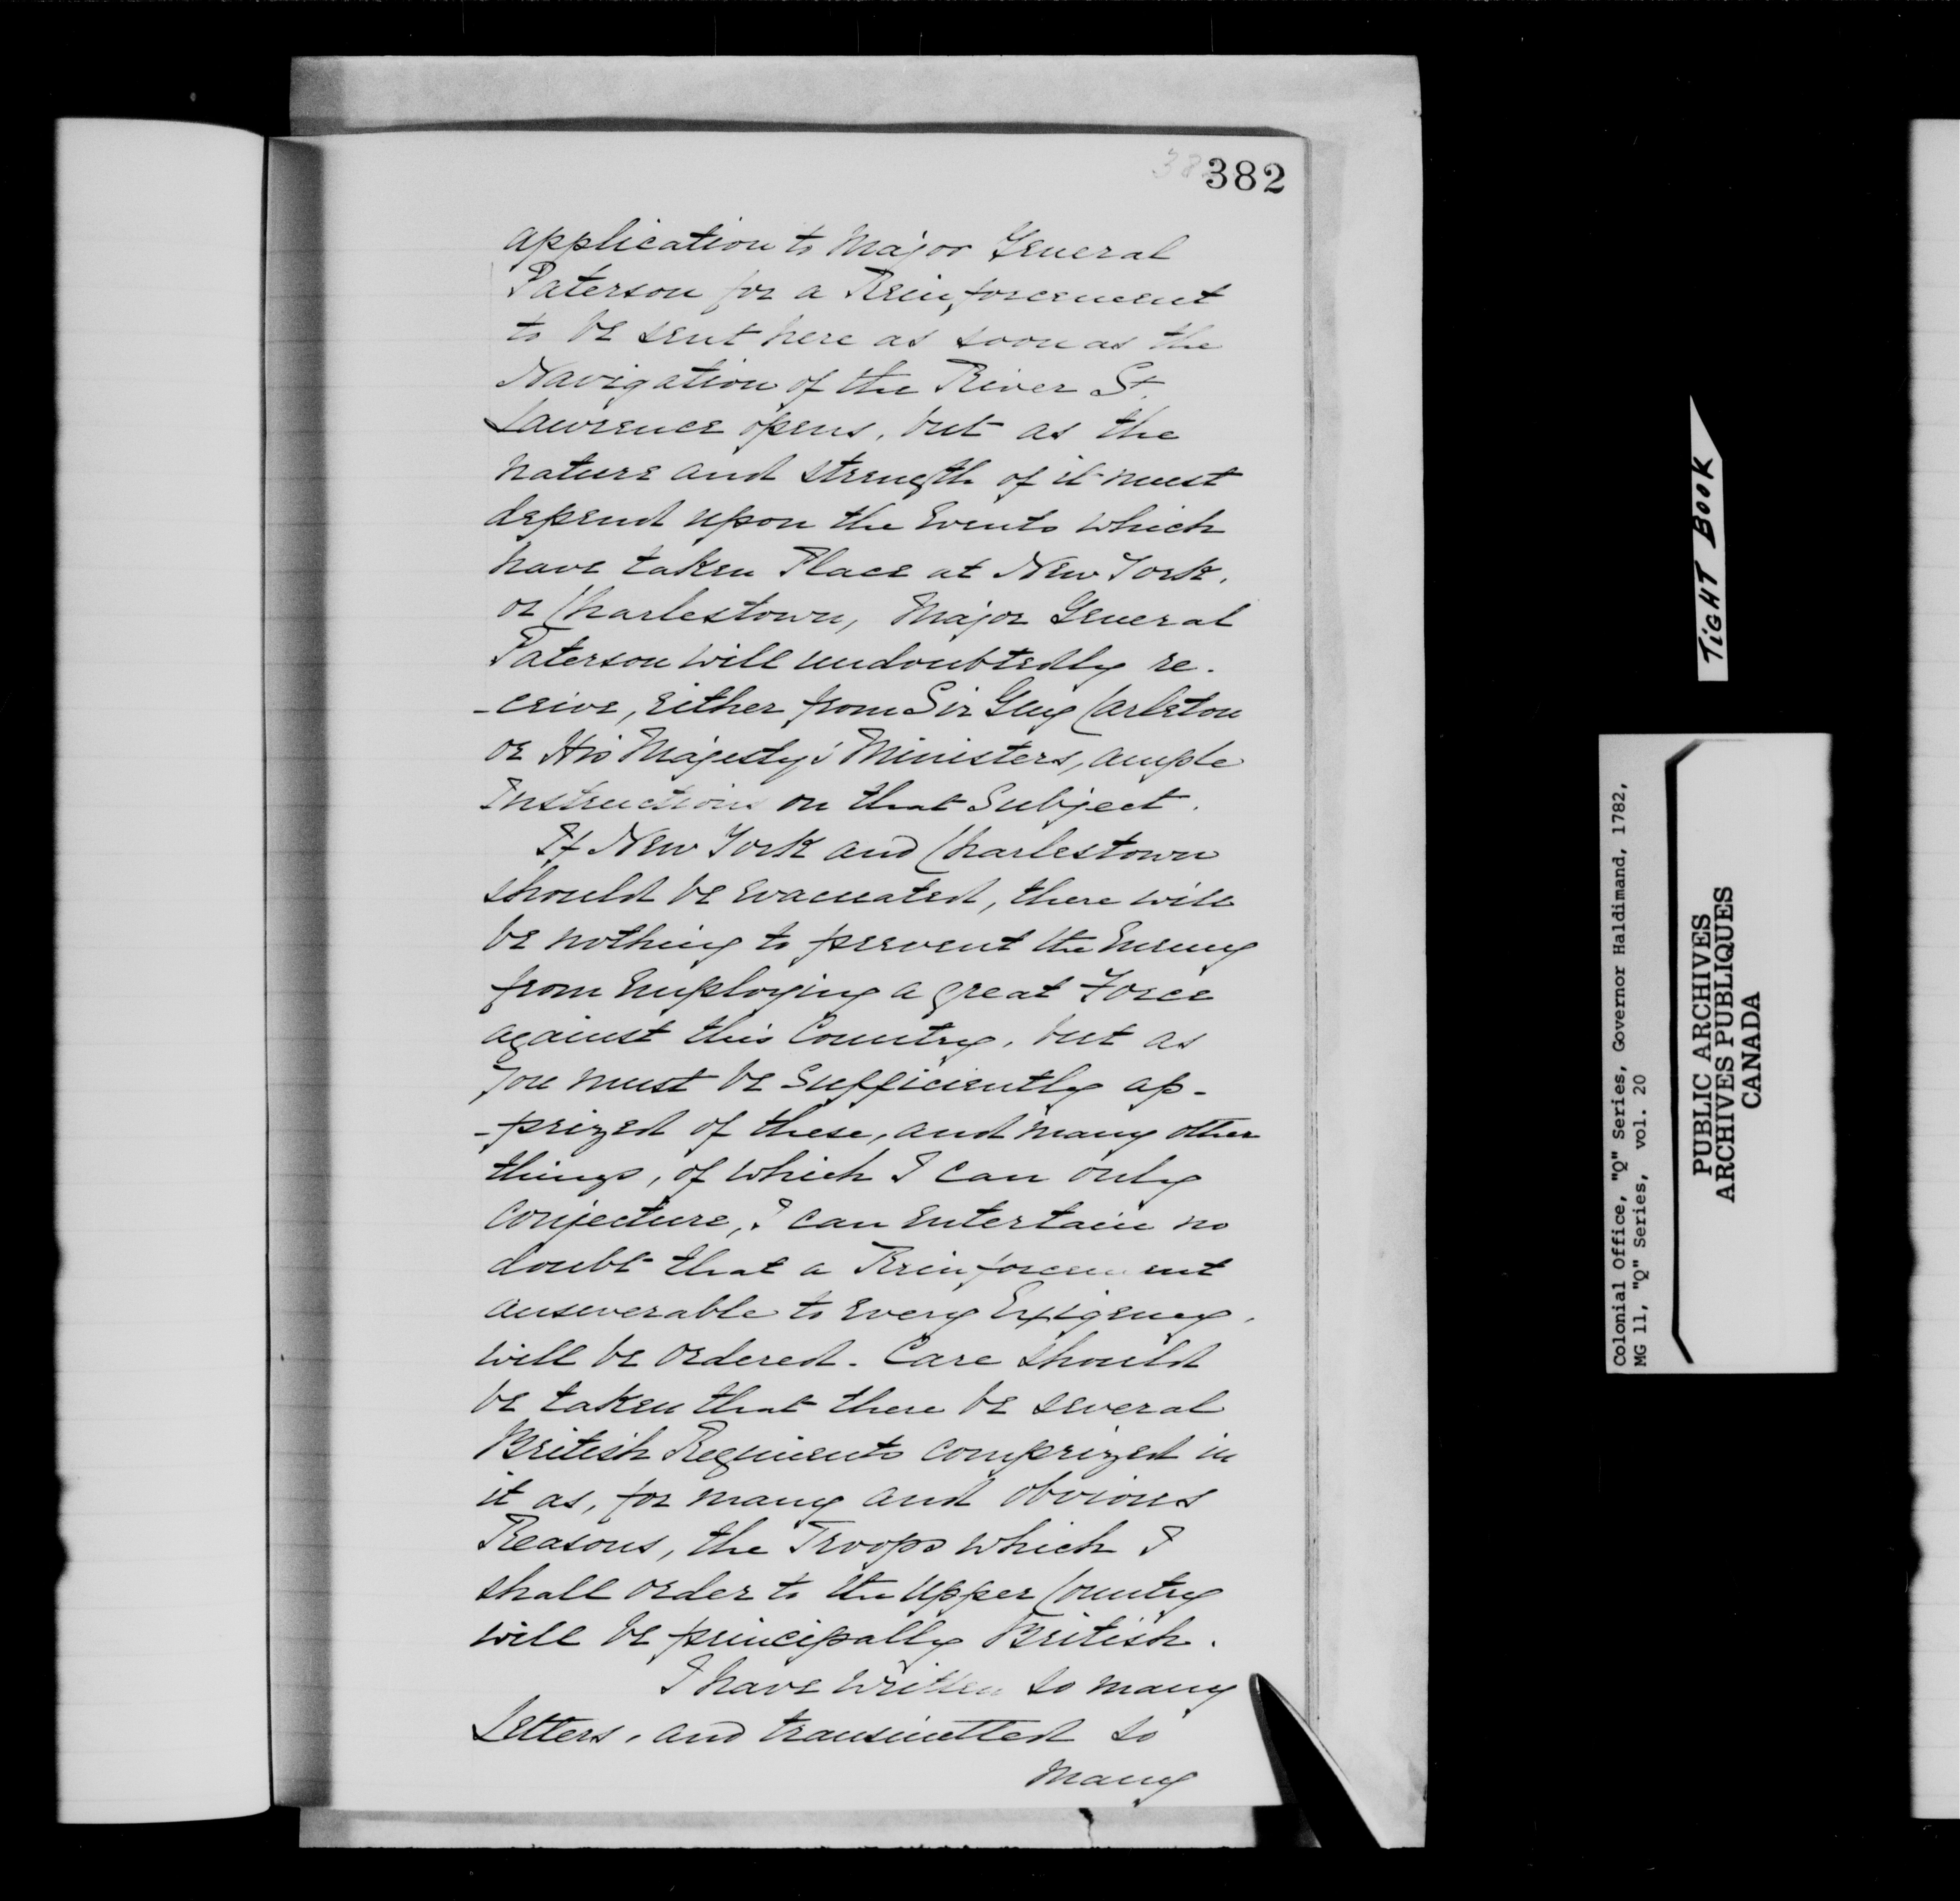 382
application to Major General
Paterson for a Reinforcement
to be sent here as soon as the
Navigation of the River St.
Lawrence opens, but as the
nature and strength of it must
depend upon the Events which
have taken Place at New York,
or Charlestown, Major General
Paterson will undoubtedly re-
-ceive, either from Sir Guy Carleton
or His Majesty's Ministers, ample
Instructions on that Subject.
If New York and Charlestown
should be evacuated, there will
be nothing to prevent the Enemy
from Employing a great Force
against this Country, but as
you must be sufficiently ap-
-prized of these, and many other
things, of which I can only
conjecture, I can entertain no
doubt that a Reinforcement
answerable to Every Exigency,
will be ordered. Care should
be taken that there be several
British Regiments comprized in
it as, for many and obvious
Reasons, the Troops which I
shall order to the Upper Country
will be principally British.
I have written so many
Letters, and transmitted so
many
TIGHT BOOK
Colonial Office, "Q" Series, Governor Haldimand, 1782,
MG 11, "Q" Series, vol. 20
PUBLIC ARCHIVES
ARCHIVES PUBLIQUES
CANADA